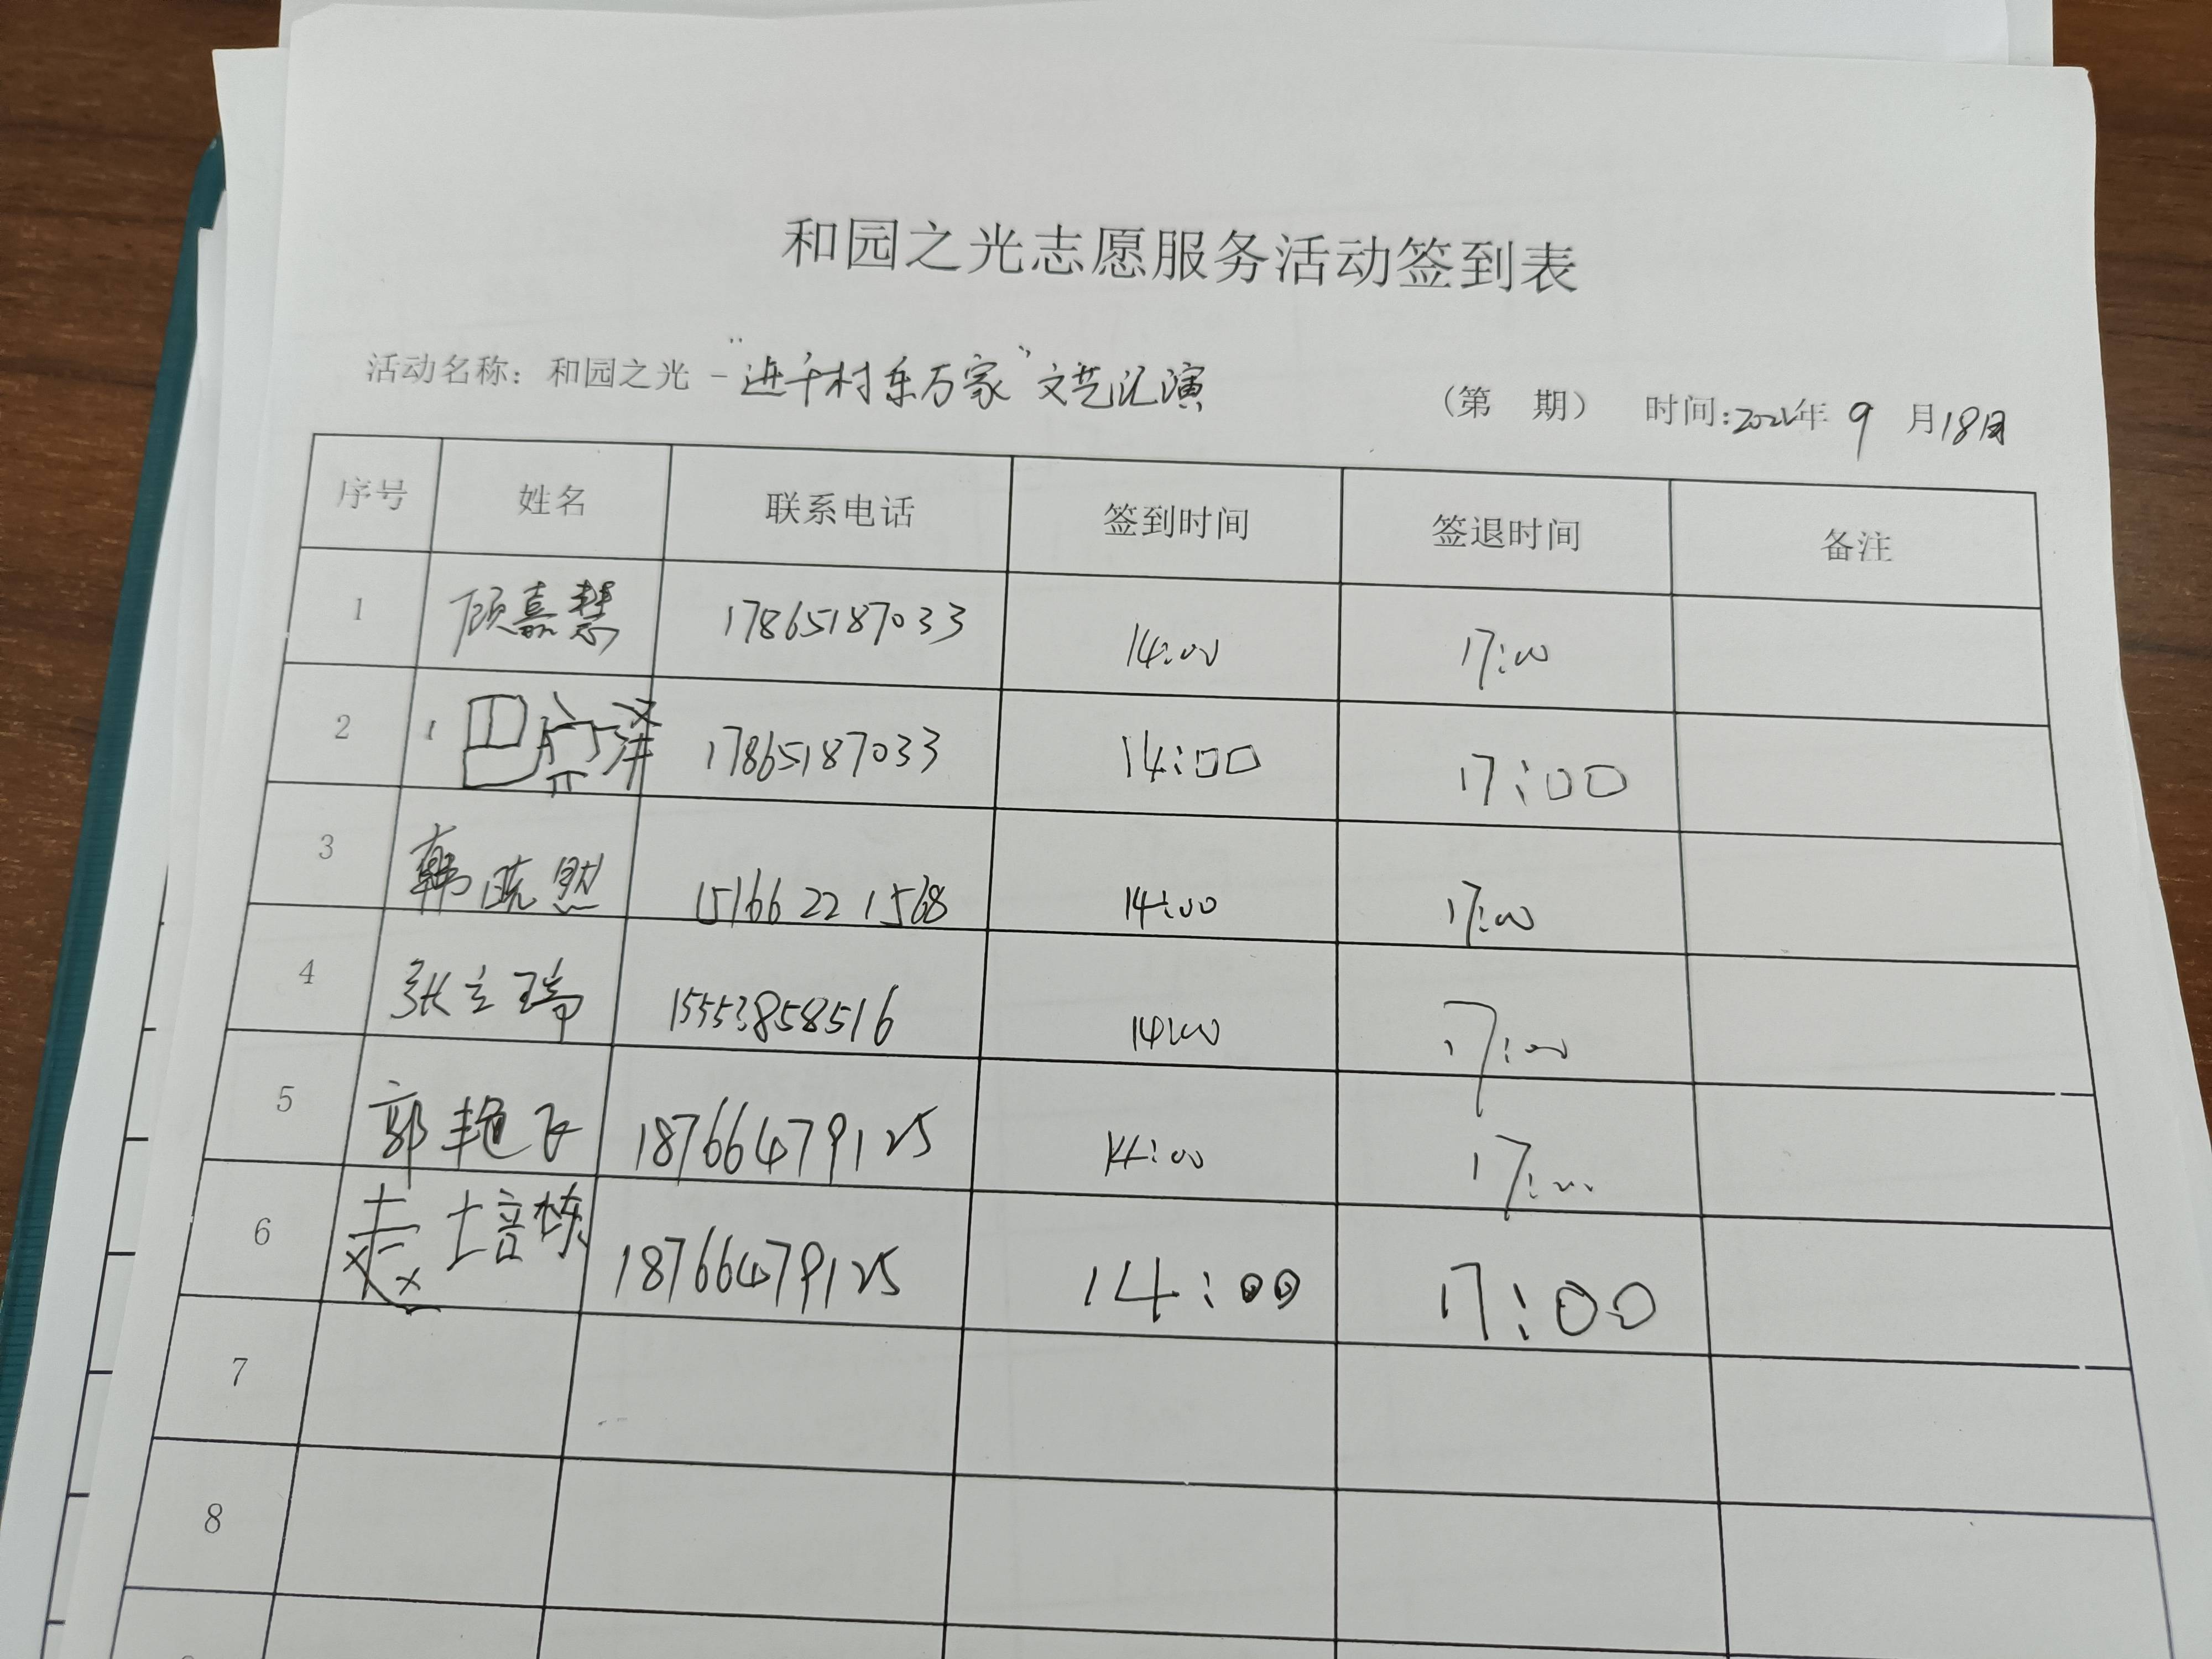 和园之光志愿服务活动签到表
活动名称：和园之光-"进千村乐万家"文艺汇演 （第 期） 时间:2022年9月18日
序号 姓名 联系电话 签到时间 签退时间 备注
1 顾嘉慧 17865187033 14:00 17:00
2 巴宗泽 17865187033 14:00 17:00
3 韩晓然 15166221568 14:00 17:00
4 张立瑞 15553858516 14:00 17:00
5 郭艳飞 18766479125 14:00 17:00
6 赵培栋 18766479125 14:00 17:00
7
8